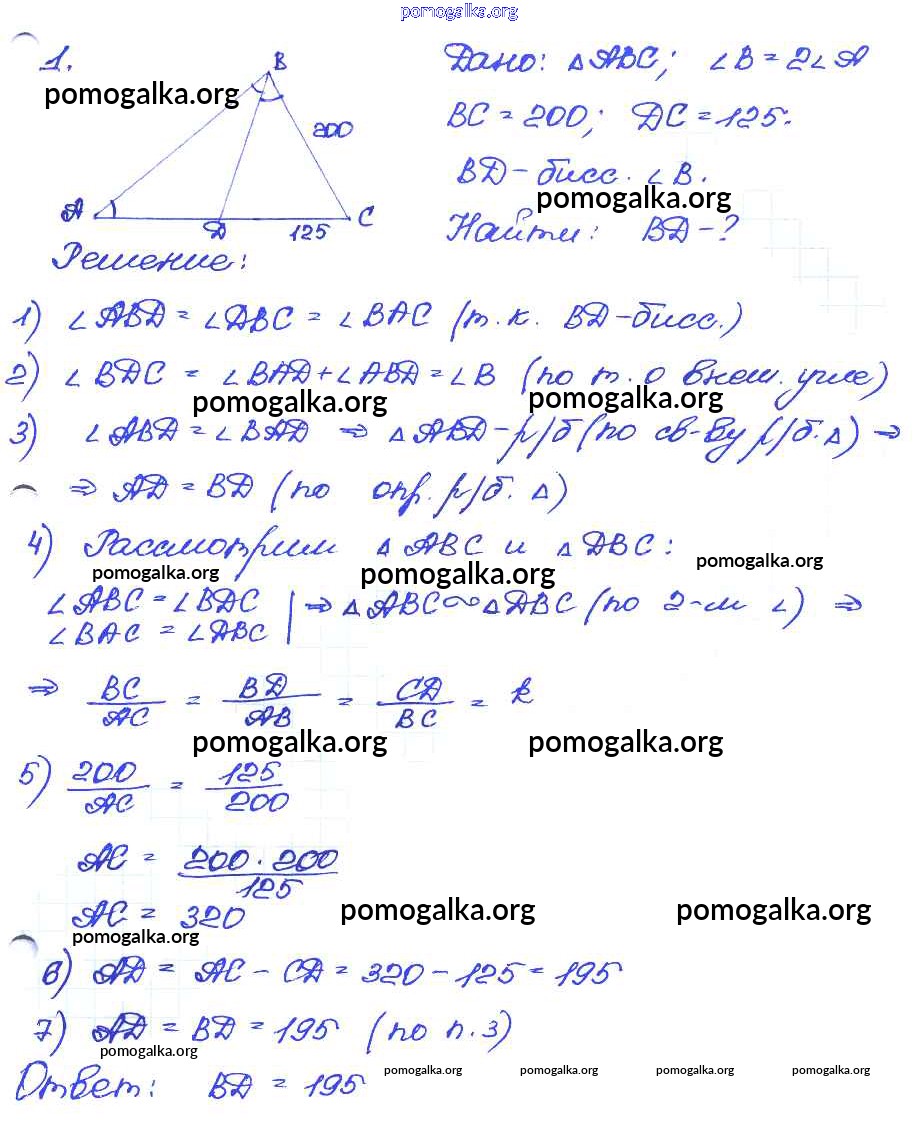 pomogalka.org
1.
B
Дано: △ABC; ∠B = 2∠A
pomogalka.org
200
BC = 200; DC = 125.
BD - бисс. ∠B.
pomogalka.org
A
D
125
C
Найти: BD - ?
Решение:
1) ∠ABD = ∠DBC = ∠BAC (т.к. BD - бисс.)
2) ∠BDC = ∠BAD + ∠ABD = ∠B (по т. о внеш. угле)
pomogalka.org pomogalka.org
3) ∠ABD = ∠BAD ⇒ △ABD - р/б (по св-ву р/б. △) ⇒
⇒ AD = BD (по опр. р/б. △)
4) Рассмотрим △ABC и △DBC:
pomogalka.org pomogalka.org pomogalka.org
∠ABC = ∠BDC | ⇒ △ABC ∾ △DBC (по 2-м ∠) ⇒
∠BAC = ∠DBC
⇒ BC/AC = BD/AB = CD/BC = k
pomogalka.org pomogalka.org
5) 200/AC = 125/200
AC = 200 · 200/125
AC = 320
pomogalka.org pomogalka.org
pomogalka.org
6) AD = AC - CD = 320 - 125 = 195
7) AD = BD = 195 (по п. 3)
pomogalka.org
Ответ: BD = 195
pomogalka.org pomogalka.org pomogalka.org pomogalka.org